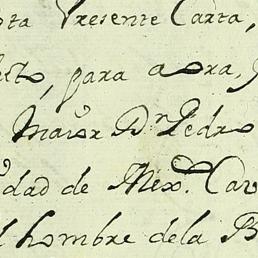 ta Presente Carta,
para aora,
Maior Dn Pedro
dad de Mexo. Cav
hombre dela B